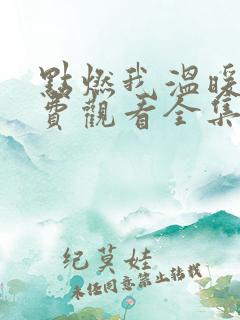 點燃我 溫暖
費觀看全集
紀莫娃
未经同意禁止转载